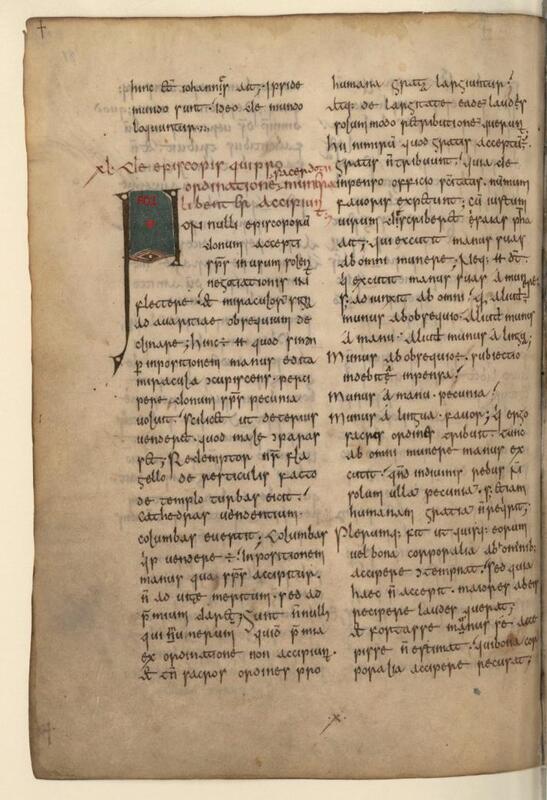 hinc et iohannes ait; ipsi de
mundo sunt. ideo de mundo
loquuntur;
xl. De episcopis qui pro
ordinatione
libenter accipiunt
Noti nulli episcoporum
donum accepti
sps in usum solent
negotiationis in
flectere. & miraculorum signa
ad avaritiae obsequium de
clinare; hinc quod simon
inpositionem manus edita
miracula concupiscens. perci
pere donum sps pecunia
voluit. scilicet ut deterius
venderet. quod male paras
set; Redemptor nr fla
gello de resticulis facto
de templo turbas eicit.
Cathedras vendentium
columbas evertit; Columbas
vendere ÷ inpositionem
manus qua sps accipitur.
n ad vite meritum. sed ad
premium daret; Sunt nonnulli
qui praemia
ex ordinatione non accipiunt.
& tn sacros ordines pro
humana gratia largiuntur.
Atq; de largitate eade laudes
solummodo retributionis querunt.
Hii nimirum quod gratis acceptum.
gratis n tribuunt. quia de
inpenso officio nummum
favoris expetunt; cum iustum
virum describeret esaias pha
ait. qui excutit manus suas
ab omni munere; Neq;
excutit manus suas a munere.
s; adiunxit ab omni. q; aliud
munus ab obsequio. aliud munus
a manu. aliud munus a lingua;
Munus ab obsequio ÷. subiectio
indebite inpensa.
Munus a manu. pecunia.
Munus a lingua. favor; q ergo
sacros ordines tribuit. tunc
ab omni munere manus ex
cutit. qndo in divinis rebus n
solum ulla pecunia. s; etiam
humanam gratia n requirit;
Plerumq; fit ut quisq; eorum
vel bona corporalia ab hominib;
accipere contempnat. sed quia
haec n accepit. maiores ab eis
recipere laudes querat;
& fortasse magnus se acce
pisse n estimat. qui bona cor
poralia accipere recusat;
.x.